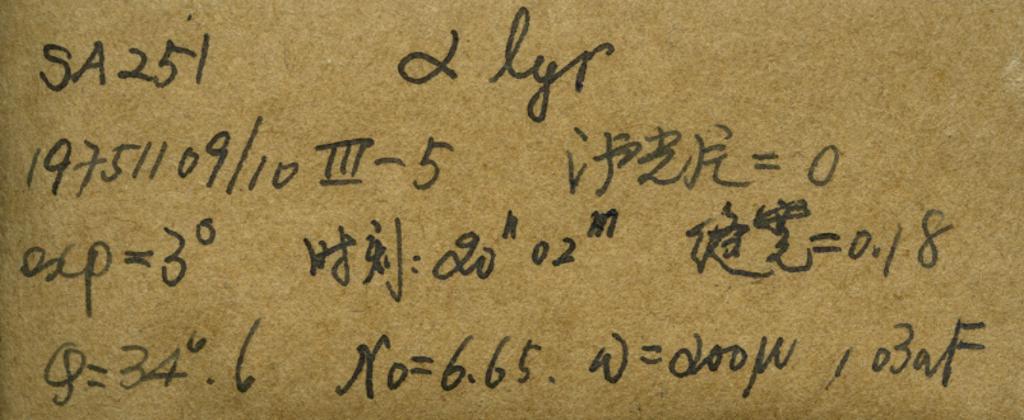 SA251 α lyr
19751109/10 III-5 沪光片=0
exp=3⁰ 时刻:20ʰ02ᵐ 缝宽=0.18
φ=34°.6 X₀=6.65. W=200μ, 103aF